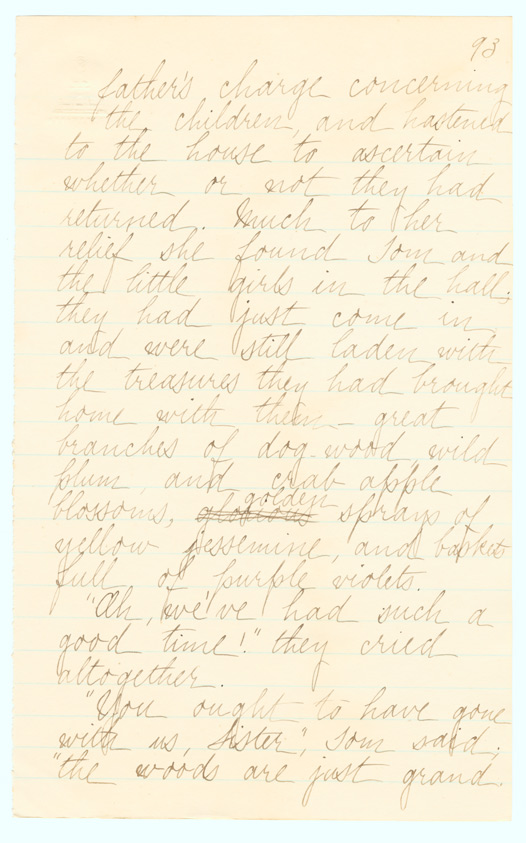 93
father's charge concerning
the children, and hastened
to the house to ascertain
whether or not they had
returned. Much to her
relief she found Tom and
the little girls in the hall;
they had just come in,
and were still laden with
the treasures they had brought
home with them – great
branches of dog-wood, wild
plum, and crab apple
golden
blossoms, glorious sprays of
yellow jessemine, and baskets
full of purple violets.
"Oh, we've had such a
good time!" they cried
altogether.
"You ought to have gone
with us, Sister", Tom said;
"the woods are just grand.